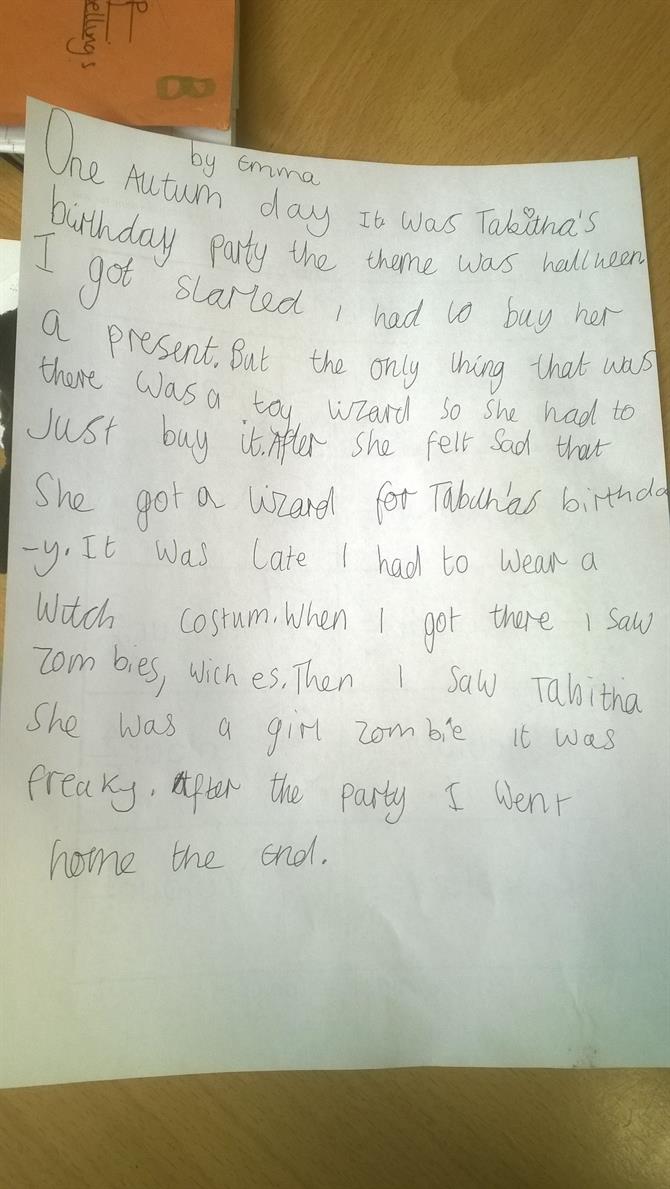 P
ellings
B
by Emma
One Autum day It was Tabitha's
birthday party the theme was hallween
I got starled I had to buy her
a present. But the only thing that was
there was a toy lizard so she had to
Just buy it. After she felt sad that
She got a lizard for Tabith'as birthda
-y. It was late I had to wear a
Witch costum. When I got there I saw
zombies, wiches. Then I saw Tabitha
She was a girl zombie it was
freaky. After the party I went
home the End.